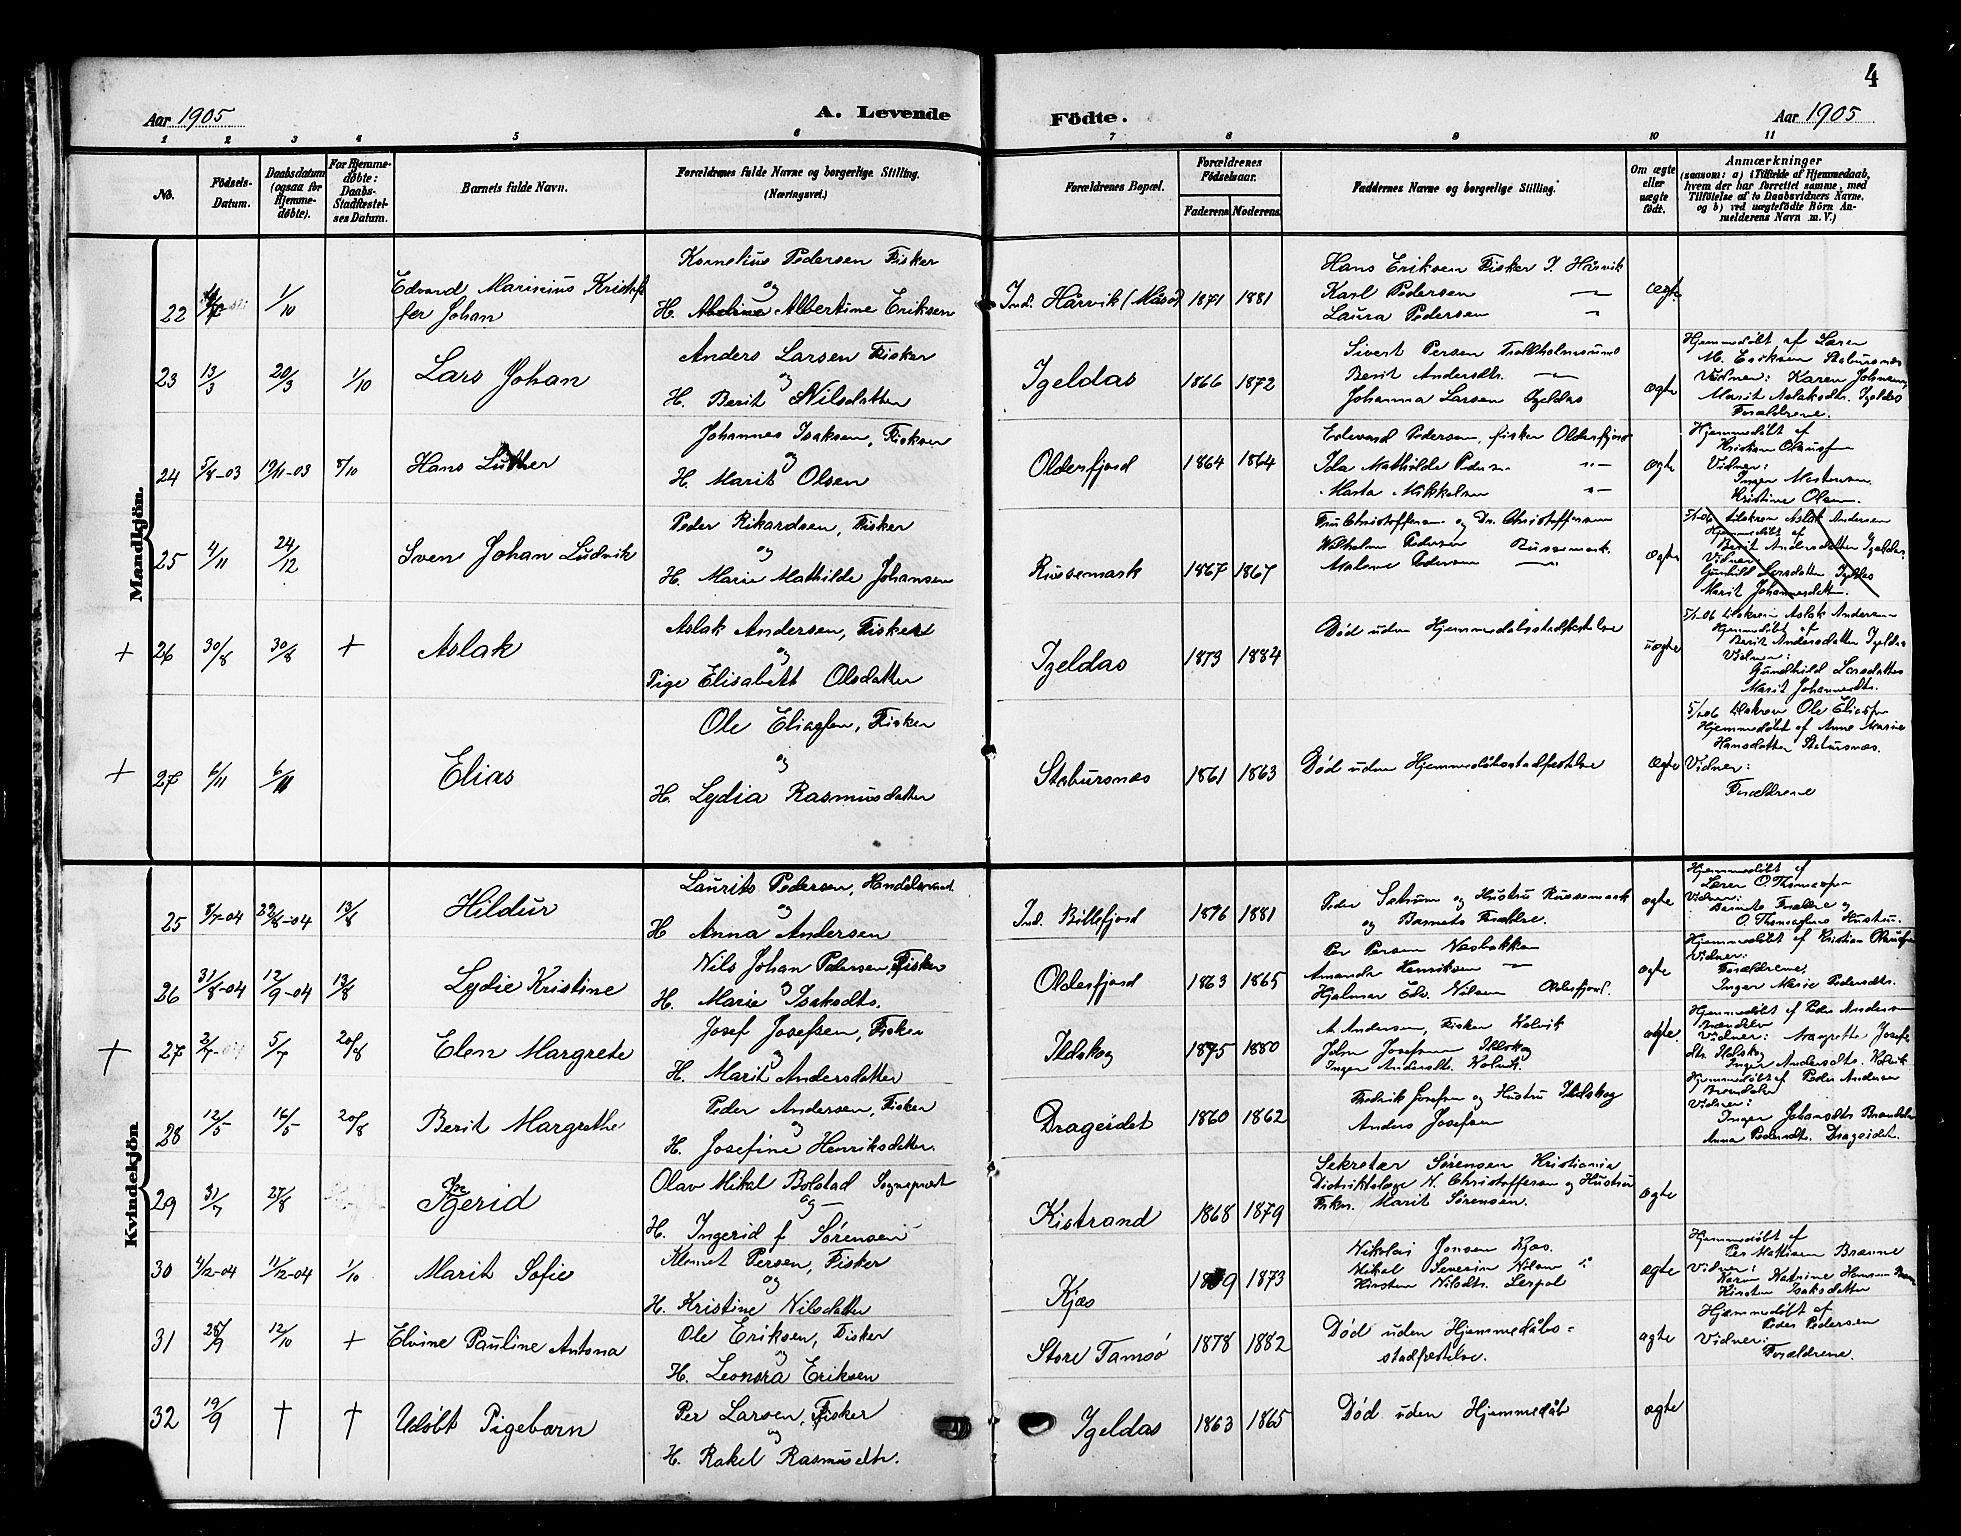 4
Aar 1905
A. Levende
Födte.
Aar 1905
1 2 3 4 5 6 7 8 9 10 11
No.
Födsels-Datum.
Daabsdatum (ogsaa for Hjemme-døbte).
For Hjemme-døbte: Daabs-Stadfæstel-ses Datum.
Barnets fulde Navn.
Forældrenes fulde Navne og borgerlige Stilling.
(Næringsvei.)
Forældrenes Bopæl.
Forældrenes Fødselsaar.
Faderens Moderens
Faddernes Navne og borgerlige Stilling.
Om ægte eller uægte født.
Anmærkninger
(saasom: a) i Tilfælde af Hjemmedaab,
hvem der har forrettet samme, med
Tilföielse af to Daabsvidners Navne,
og b) ved uægtefödte Börn An-
melderens Navn m. V.)
Mandkjön.
22 1/10 Edvard Marinius Kristof
fer Johan
Kornelius Pedersen Fisker
og
H. Albertine Eriksen
Ind. Hårvik (Måsø) 1871 1881
Hans Eriksen Fisker I. Hårvik
Karl Pedersen —"—
Laura Pedersen "
ægte
23 13/3 20/3 1/10 Lars Johan
Anders Larsen Fisker
og
H. Berit Nilsdatter
Igeldas 1866 1872
Sivert Persen Troldholmsund
Berit Andersdtr. —"—
Johanna Larsen Igeldas
ægte
Hjemmedøbt af Lærer
M. Eriksen Stabursnæs
Vidner: Karen Johnsen,
Marit Aslaksdtr. Igeldas
Forældrene.
24 5/8-03 19/11-03 8/10 Hans Luther
Johannes Isaksen, Fisker
og
H. Marit Olsen
Olderfjord 1864 1864
Edevard Pedersen, fisker Olderfjord
Ida Mathilde Pedersen "—
Marta Mikkelsen "—
ægte
Hjemmedøbt af
Vidner:
Inger Mortensen
Kristine Olsen.
25 4/11 24/12 Sven Johan Ludvik
Peder Rikardsen, Fisker
og
H. Marie Mathilde Johansen
Russemark 1867 1867
Fru Christoffersen og Dr. Christoffersen
Wilhelm Pedersen Russemark.
Malene Pedersen —"—
ægte
5/1-06 tilskrev Aslak Andersen
Hjemmedøbt af
Berit Andersdatter Igeldas
Vidner
Gunhild Larsdatter Igeldas
Marit Johannesdatter.
+ 26 30/8 30/8 + Aslak
Aslak Andersen, Fisker
og
Pige Elisabett Olsdatter
Igeldas 1873 1884
Død uden Hjemmedabsstadfestelse
uægte
5/1-06 tilskrev Aslak Andersen
Hjemmedøbt af
Berit Andersdatter Igeldas
Vidner:
Gundhild Larsdatter
Marit Johannesdtr.
+ 27 6/11 6/11 Elias
Ole Eliassen, Fisker
og
H. Lydia Rasmusdatter
Stabursnæs 1861 1863
Død uden Hjemmedøbsstadfestelse
ægte
5/1-06 tilskrev Ole Eliassen
Hjemmedøbt af Anne Marie
Hansdatter Stabursnæs.
Vidner:
Forældrene
Kvindekjön
25 8/7-04 29/8-04 13/8 Hildur
Laurits Pedersen, Handelsmand
og
H Anna Andersen
Ind. Billefjord 1876 1881
Peder Sætrum og Hustru Russemark
og Barnets Forældre.
ægte
Hjemmedøbt af
Lærer O. Thomassen
Vidner:
Barnets Forældre og
O. Thomassens Hustru.
26 31/8-04 12/9-04 13/8 Lydie Kristine
Nils Johan Pedersen, Fisker
og
H. Marie Isaksdtr.
Olderfjord 1863 1865
Per Persen Næsbakken
Amanda Henriksen —"—
Hjalmar Edv. Nilsen Olderfjord.
ægte
Hjemmedøbt af Kristian Olaussen
Vidner:
Forældrene,
Inger Marie Pedersdtr.
+ 27 2/7-04 5/7 20/8 Elen Margrete
Josef Josefsen, Fisker
og
H. Marit Andersdatter
Ildskog 1875 1880
A. Andersen, Fisker Kolvik
John Josefsen Ildskog
Inger Andersdtr. Kolvik.
ægte.
Hjemmedøbt af Peder Andersen
Brændelv
Vidner: Margrette Josefs
dtr. Ildskog
Inger Andersdtr. Kolvik
28 12/5 16/5 20/8 Berit Margrethe
Peder Andersen, Fisker
og
H. Josefine Henriksdatter.
Drageidet 1860 1862
Fredrik Josefsen og Hustru Ildskog
Anders Josefsen
Hjemmedøbt af Peder Andersen
Brændelv
Vidner:
Inger Johansdtr Brændelv
Anna Pedersdtr. Drageidet.
29 31/7 27/8 Ingerid
Olav Mikal Bolstad Sogneprest
og
H. Ingerid f Sørensen
Kistrand 1868 1879
Sekretær Sørensen Kristiania
Distriktslæge N. Christoffersen og Hustru
Frkn. Marit Sørensen.
ægte
30 4/2-04 11/2-04 1/10 Marit Sofie
Klemet Persen, Fisker
og
H. Kristine Nilsdatter
Kjæs 1873
Nikolai Jonsen Kjæs.
Mikal Severin Nilsen "
Kirsten Nilsdtr. Lerpol
ægte
Hjemmedøbt af
Per Mathisen Brænne
Vidner:
Karen Katrine Hansen
Kirsten Isaksdatter
31 28/9 12/10 + Elvine Pauline Antona
Ole Eriksen, Fisker
og
H. Leonora Eriksen
Store Tamsø 1878 1882
Død uden Hjemmedåbs-
stadfestelse.
ægte
Hjemmedøbt af
Peder Pedersen
Vidner:
Forældrene.
32 19/9 † † Udøbt Pigebarn
Per Larsen, Fisker
og
H. Rakel Rasmusdtr.
Igeldas 1863 1865
Død uden Hjemmedåb
ægte